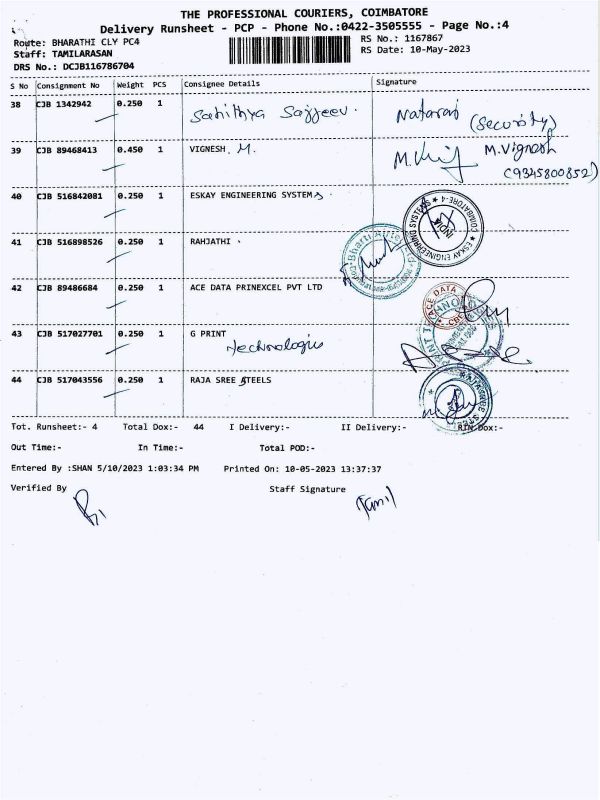 THE PROFESSIONAL COURIERS, COIMBATORE
Delivery Runsheet - PCP - Phone No.:0422-3505555 - Page No.:4
Route: BHARATHI CLY PC4 RS No.: 1167867
Staff: TAMILARASAN RS Date: 10-May-2023
DRS No.: DCJB116786704
S No Consignment No Weight PCS Consignee Details Signature
38 CJB 1342942 0.250 1 Sahithya Sajjeev. Nataraj (Security)
39 CJB 89468413 0.450 1 VIGNESH. M. M. Vignesh
(9345800852)
40 CJB 516842081 0.250 1 ESKAY ENGINEERING SYSTEMS ESKAY ENGINEERING SYSTEMS COIMBATORE-4 INDIA
41 CJB 516898526 0.250 1 RAHJATHI
42 CJB 89486684 0.250 1 ACE DATA PRINEXCEL PVT LTD ACE DATA
43 CJB 517027701 0.250 1 G PRINT
Technologies
44 CJB 517043556 0.250 1 RAJA SREE STEELS
Tot. Runsheet:- 4 Total Dox:- 44 I Delivery:- II Delivery:- RTN Dox:-
Out Time:- In Time:- Total POD:-
Entered By :SHAN 5/10/2023 1:03:34 PM Printed On: 10-05-2023 13:37:37
Verified By Staff Signature
Tamil